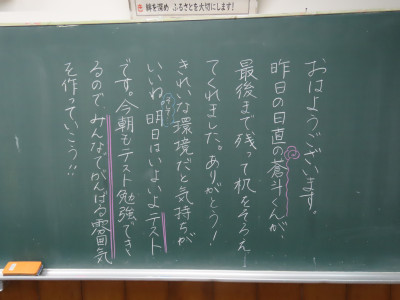 絆を深め ふるさとを大切にします!
おはようございます。
昨日の日直の蒼斗くんが、
最後まで残って机をそろえ
てくれました。ありがとう!
きれいな環境だと気持ちが
いいね。明日はいよいよテスト
です。今朝もテスト勉強でき
るので、みんなでがんばる雰囲気
を作っていこう!!